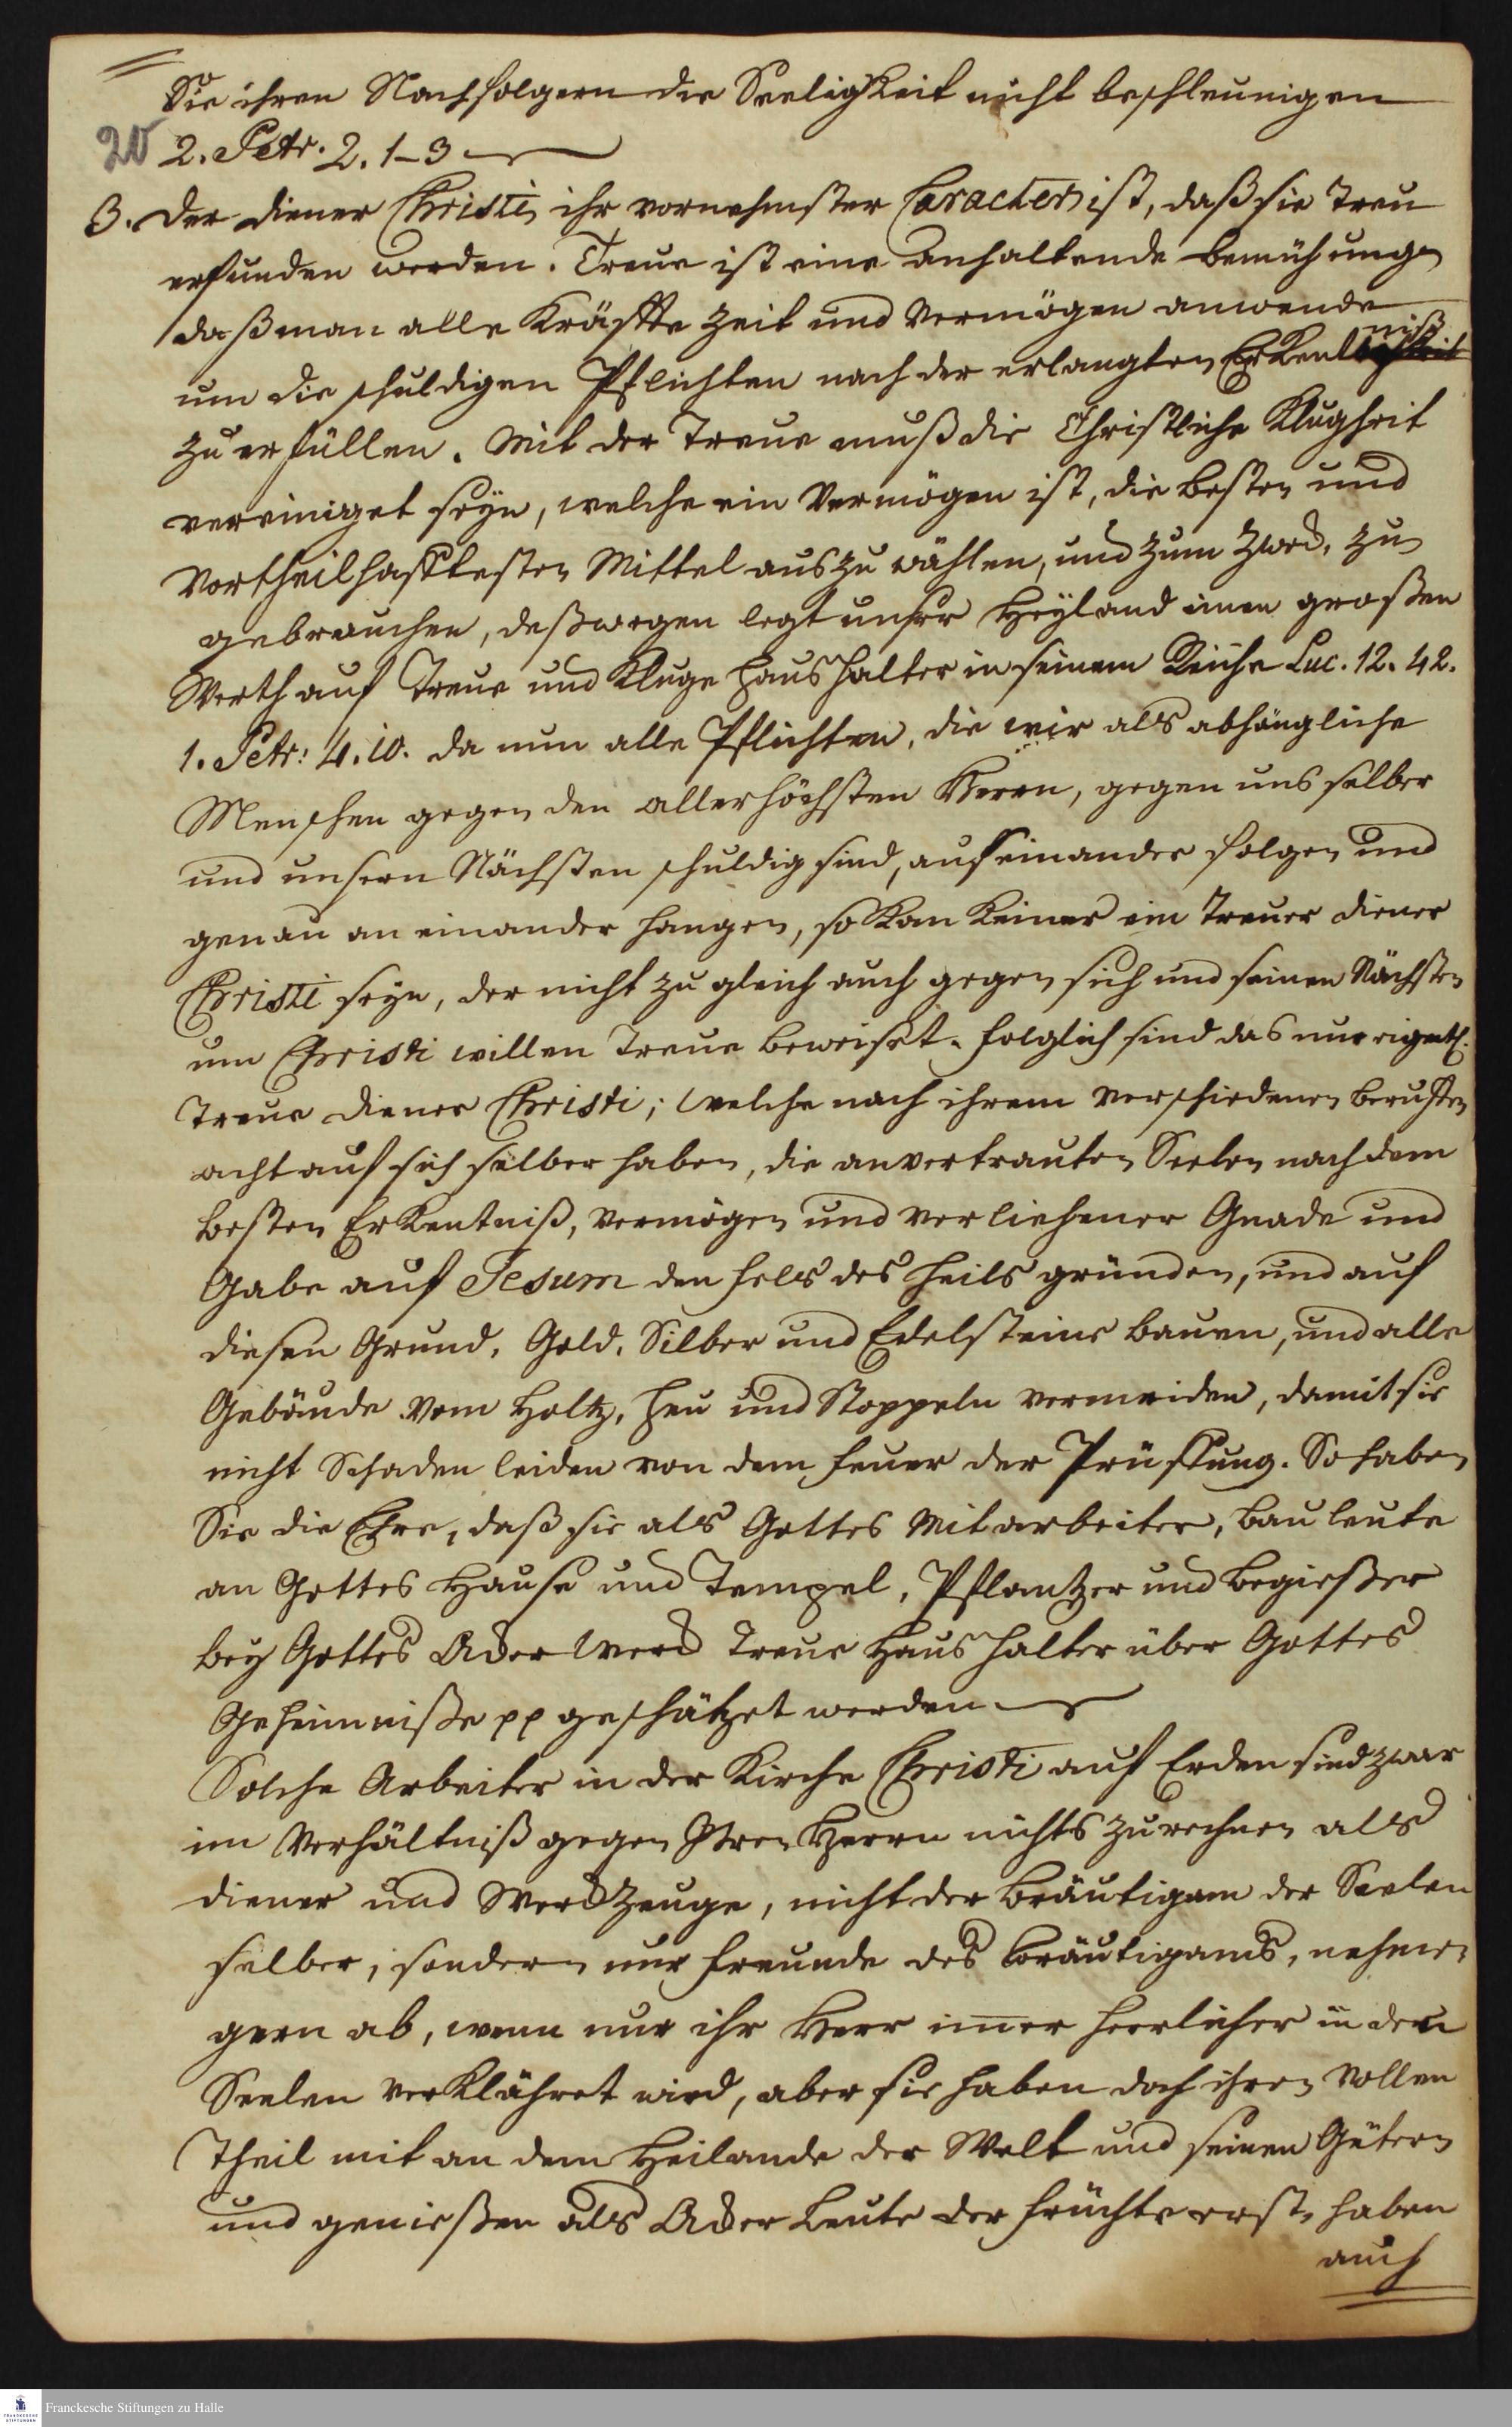 Sie ihren Nachfolgern die Seeligkeit nicht beschleunigen
20 2. Petr. 2. 1-3
3. Der diener Christi, ihr vornehmster Caracter ist, daß sie Treu
erfunden werden. Treue ist eine anhaltende bemühung,
daß man alle Kräffte Zeit und Vermögen anwende
um die schuldigen Pflichten nach der erlangten Erkentniß
zu erfüllen. Mit der Treue muß die Christliche Klugheit
vereiniget seyn, welche ein Vermögen ist, die besten und
Vortheilhafftesten Mittel auszuwählen, und zum Zweck, zu
gebrauchen, deßwegen legt unser Heyland einen großen
Werth auf Treue und Kluge Haushalter in seinem Reiche Luc. 12. 42.
1. Petr: 4. 10. da nun alle Pflichten, die wir als abhängliche
Menschen gegen den allerhöchsten Herrn, gegen uns selber
und unsern Nächsten schuldig sind, auf einander folgen und
genau an einander hangen, so kan keiner ein Treuer diener
Christi seyn, der nicht zugleich auch gegen sich und seinen Nächsten
um Christi willen Treue beweiset. folglich sind das nur eigentl.
Treue diener Christi; welche nach ihrem verschiedenen beruffen
acht auf sich selber haben, die anvertrauten Seelen nach dem
besten Erkentniß, Vermögen und verliehener Gnade und
Gabe auf Jesum den fels des Heils gründen, und auf
diesen Grund, Gold, Silber und Edelsteine bauen, und alle
Gebäude vom Holtz, Heu und Stoppeln vermeiden, damit sie
nicht Schaden leiden von dem feuer der Prüffung. So haben
Sie die Ehre, daß sie als Gottes Mitarbeiter, bauleute
an Gottes Hause und Tempel, Pflantzer und begießer
bey Gottes Ackerwerck Treue Haushalter über Gottes
Geheimniße pp geschätzet werden
Solche Arbeiter in der Kirche Christi auf Erden sind zwar
im Verhältniß gegen Ihren Herrn nichts zu rechnen als
diener und Werckzeuge, nicht der bräutigam der Seelen
selber, sondern nur freunde des bräutigams, nehmen
gern ab, wenn nur ihr Herr immer herrlicher in den
Seelen verklähret wird, aber sie haben doch ihren vollen
Theil mit an dem Heilande der Welt und seinen Gütern
und genießen als Ackerleute der früchte erst, haben
auch
Franckesche Stiftungen zu Halle